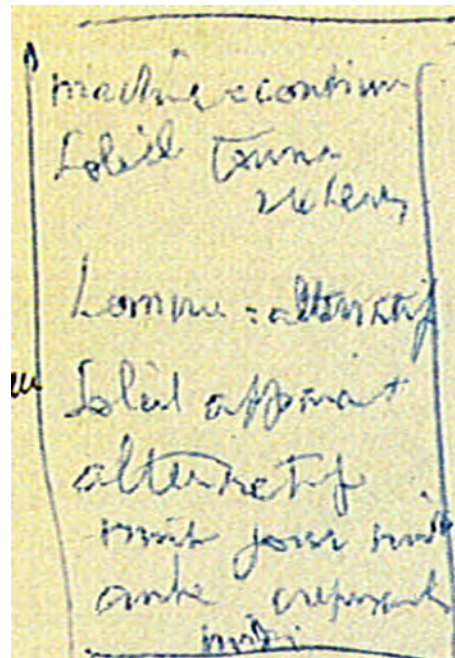 machine = continu
Soleil tourne
L'homme = alternatif
Soleil apparait
alternatif
nuit jour nuit
aube crépuscule
midi